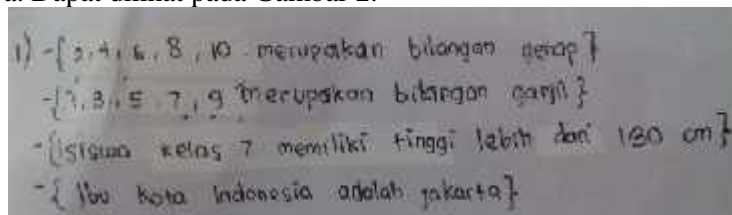 a. Dapat dilihat pada Gambar 2.
1) - {2, 4, 6, 8, 10 merupakan bilangan genap}
- {1, 3, 5, 7, 9 merupakan bilangan ganjil}
- {siswa kelas 7 memiliki tinggi lebih dari 180 cm}
- { Ibu kota Indonesia adalah jakarta}